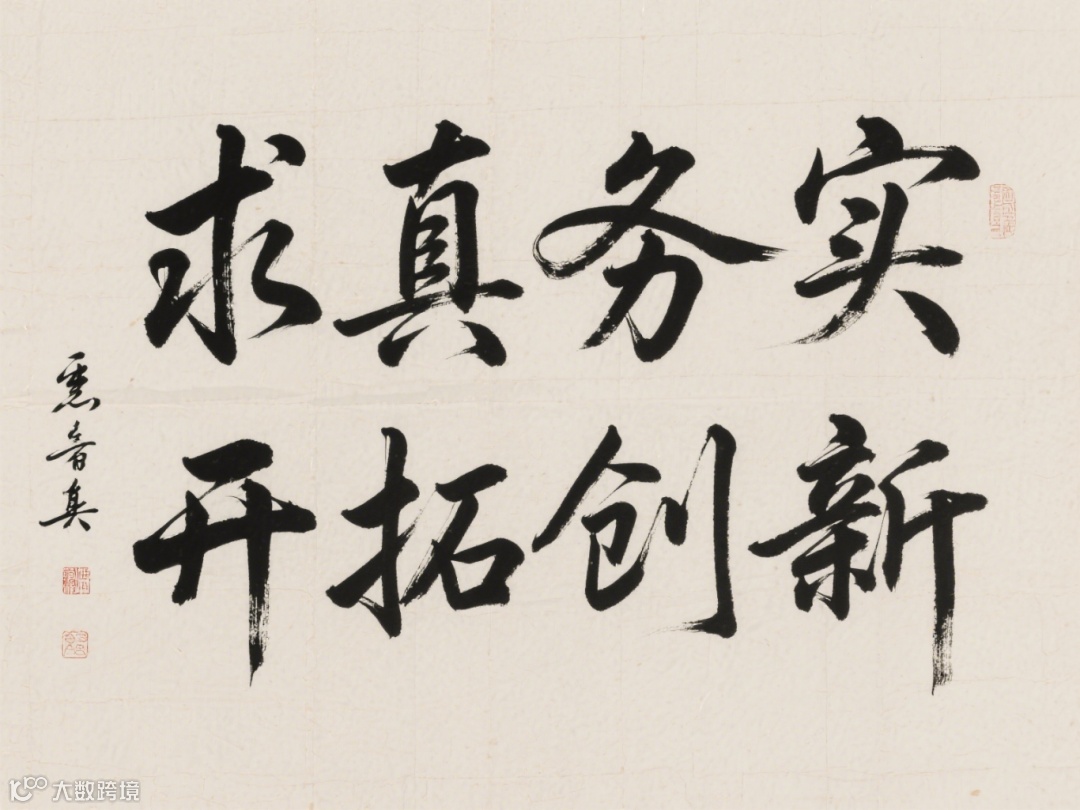 求真务实
开拓创新
大数跨境